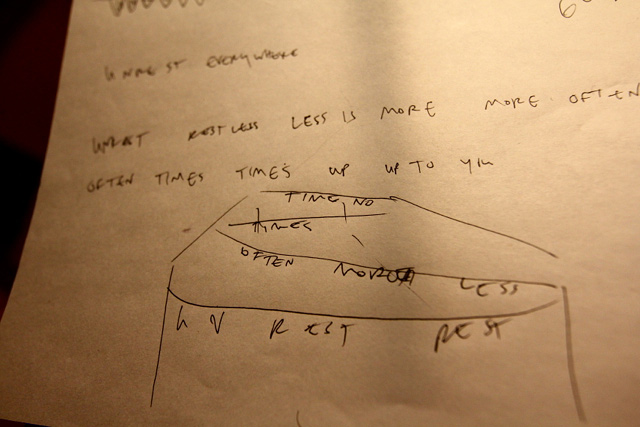 UNREST EVERYWHERE
UNREST RESTLESS LESS IS MORE MORE OFTEN
OFTEN TIMES TIME'S UP UP TO YOU
TIME NO
TIMES
OFTEN MORE LESS
UN REST REST